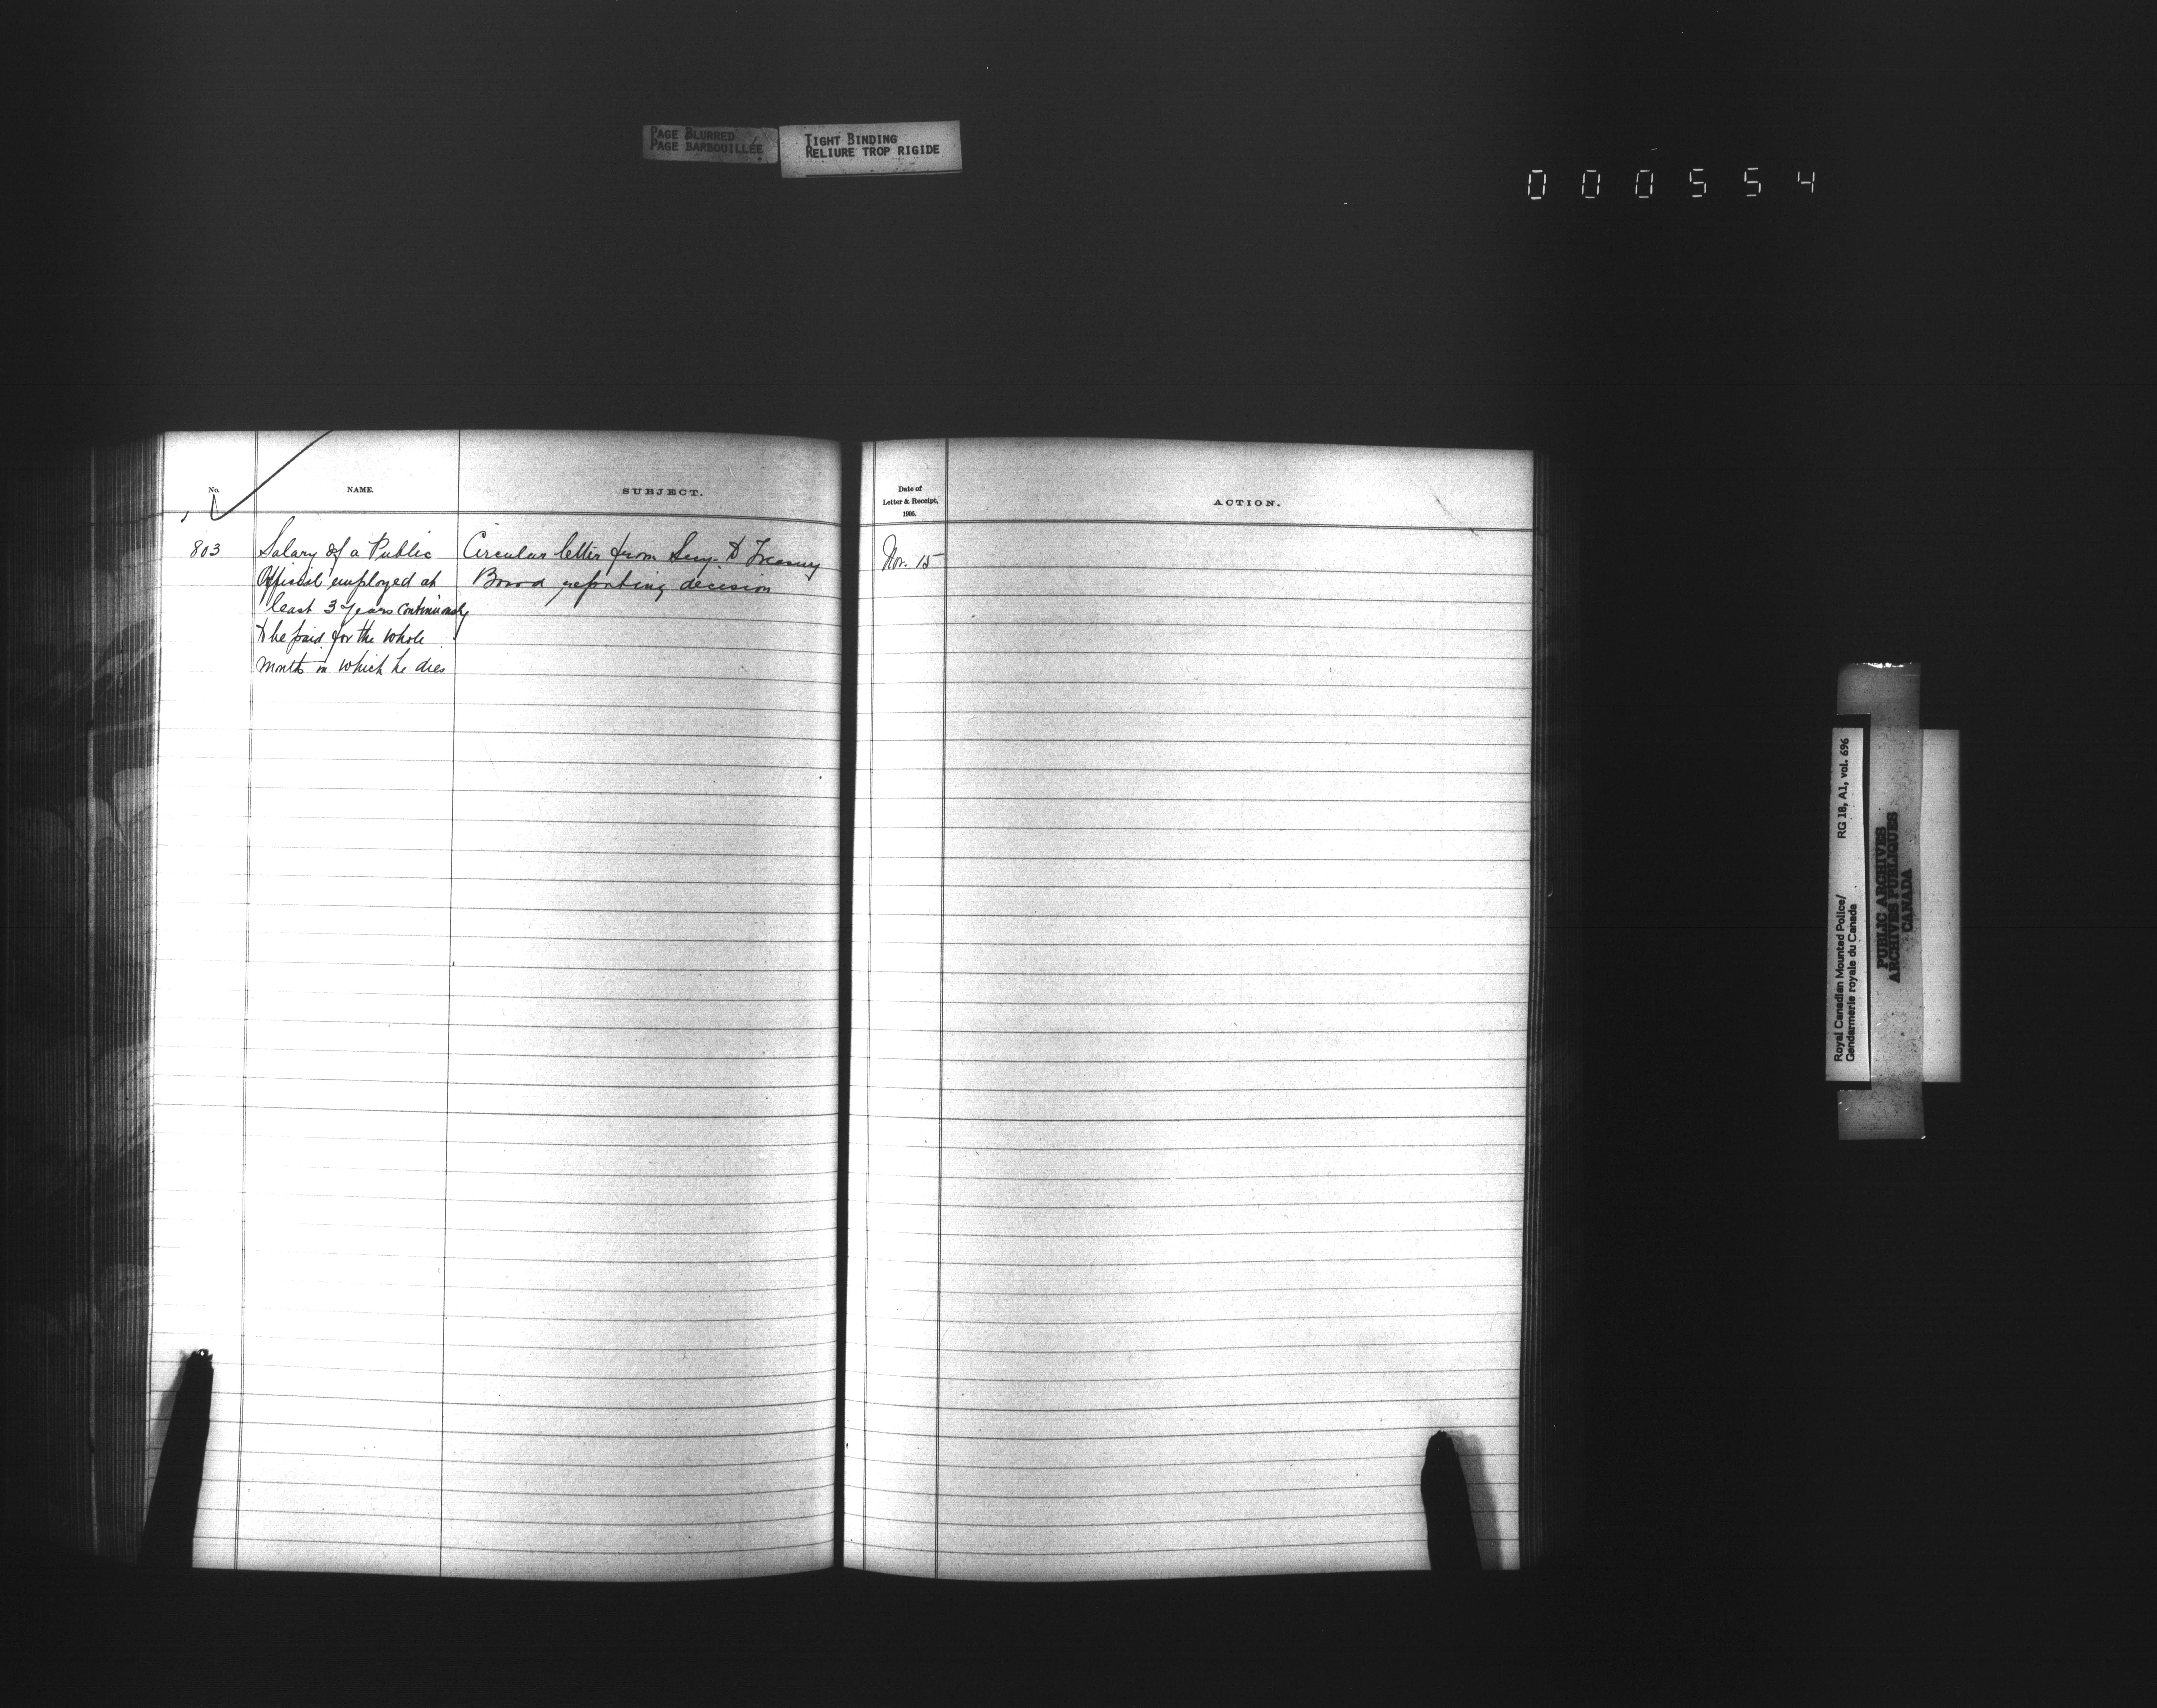 PAGE BLURRED
PAGE BARBOUILLÉE
TIGHT BINDING
RELIURE TROP RIGIDE
000554
No.
NAME.
SUBJECT.
Date of
Letter & Receipt,
1905.
ACTION.
803
Salary of a Public
Official employed at
least 3 years continuously
to be paid for the whole
month in which he dies
Circular letter from Secy. to Treasury
Board reporting decision
Nov. 15
Royal Canadian Mounted Police/
Gendarmerie royale du Canada
RG 18, A1, vol. 696
PUBLIC ARCHIVES
ARCHIVES PUBLIQUES
CANADA